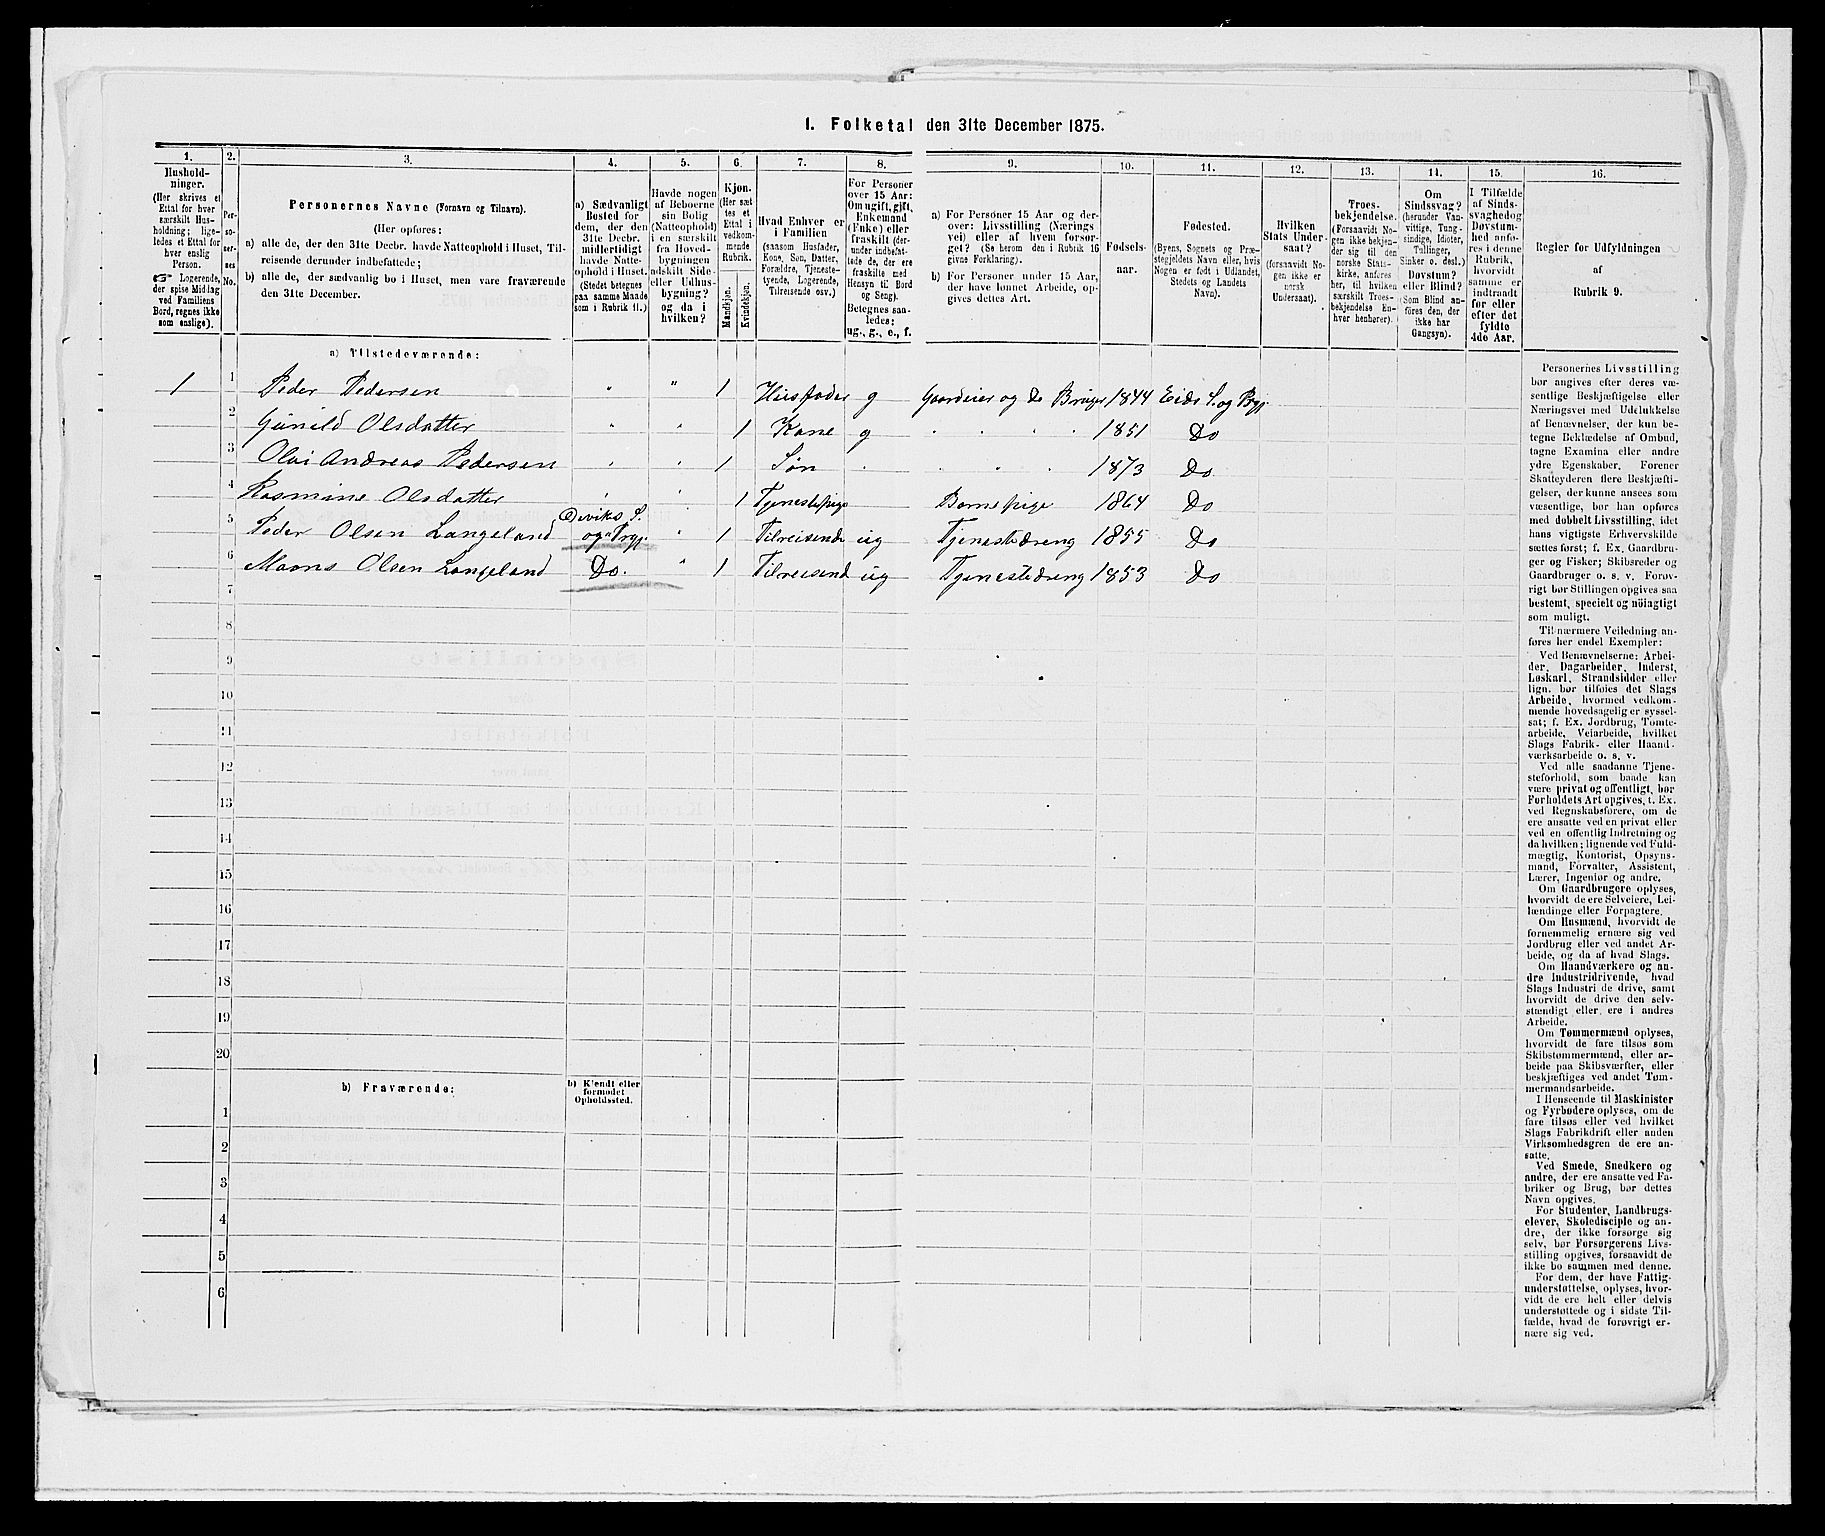 I. Folketal den 31te December 1875.
1. 2. 3. 4. 5. 6. 7. 8. 9. 10. 11. 12. 13. 14. 15. 16.
Hushold-
ninger.
(Her skrives et
Ettal for hver
særskilt Hus-
holdning; lige-
ledes et Ettal for
hver enslig
Person.
☞ Logerende,
der spise Middag
ved Familiens
Bord, regnes ikke
som enslige).
Per-
so-
ner-
nes
No.
Personernes Navne (Fornavn og Tilnavn).
(Her opføres:
a) alle de, der den 31te Decbr. havde Natteophold i Huset, Til-
reisende derunder indbefattede;
b) alle de, der sædvanlig bo i Huset, men vare fraværende
den 31te December.
a) Sædvanligt
Bosted for
dem, der den
31te Decbr.
midlertidigt
havde Natte-
ophold i Huset.
(Stedet betegnes
paa samme Maade
som i Rubrik 11.)
Havde nogen
af Beboerne
sin Bolig
(Natteophold)
i en særskilt
fra Hoved-
bygningen
adskilt Side-
eller Udhus-
bygning?
og da i
hvilken?
Kjøn.
(Her sæt-
tes et
Ettal i
vedkom-
mende
Rubrik.
Mandkjøn.
Kvindekjøn.
Hvad Enhver er
i Familien
(saasom Husfader,
Kone, Søn, Datter,
Forældre, Tjeneste-
tyende, Logerende,
Tilreisende osv.)
For Personer
over 15 Aar:
Om ugift, gift,
Enkemand
(Enke) eller
fraskilt (der-
under indbefat-
tede de, der ere
fraskilte med
Hensyn til Bord
og Seng).
Betegnes saa-
ledes:
ug., g., e., f.
a) For Personer 15 Aar og der-
over: Livsstilling (Nærings-
vei) eller af hvem forsør-
get? (Se herom den i Rubrik 16
givne Forklaring).
b) For Personer under 15 Aar,
der have lønnet Arbeide, op-
gives dettes Art.
Fødsels-
aar.
Fødested.
(Byens, Sognets og Præ-
stegjeldets Navn eller, hvis
Nogen er født i Udlandet,
Stedets og Landets
Navn).
Hvilken
Stats Under-
saat?
(forsaavidt No-
gen ikke er
norsk
Undersaat).
Troes-
bekjendelse.
(Forsaavidt No-
gen ikke bekjen-
der sig til den
norske Stats-
kirke, anføres
her, til hvilken
særskilt Troes-
bekjendelse En-
hver henhører).
Om
Sindssvag?
(herunder Van-
vittige, Tung-
sindige, Idioter,
Tullinger,
Sinker o. desl.)
Døvstum?
eller Blind?
(Som Blind an-
føres den, der
ikke har
Gangsyn).
I Tilfælde
af Sinds-
svaghedog
Døvstum-
hed anfø-
res i denne
Rubrik,
hvorvidt
samme er
indtraadt
før eller
efter det
fyldte
4de Aar.
Regler for Udfyldningen
af
Rubrik 9.
a) Tilstedeværende:
1 1 Peder Pedersen " " 1 Husfader g Gaardeier og do Bruger 1844 Eids S. og Prgj
2 Gunild Olsdatter " " 1 Kone g 1851 Do
3 Olai Andreas Pedersen " " 1 Søn 1873 Do
4 Rasmine Olsdatter " " 1 Tjenestepige Barnepige 1864 Do
5 Peder Olsen Langeland S. og Prgj. " 1 Tilreisende ug Tjenestedreng 1855 Do
6 Maons Olsen Langeland Do. " 1 Tilreisend ug Tjenestedreng 1853 Do
7
8
9
10
11
12
13
14
15
16
17
18
19
20
b) Fraværende:
b) Kjendt eller
formodet
Opholdssted.
1
2
3
4
5
6
Personernes Livsstilling
bør angives efter deres væ-
sentlige Beskjæftigelse eller
Næringsvei med Udelukkelse
af Benævnelser, der kun be-
tegne Beklædelse af Ombud,
tagne Examina eller andre
ydre Egenskaber. Forener
Skatteyderen flere Beskjæfti-
gelser, der kunne ansees som
væsentlige, bør han opføres
med dobbelt Livsstilling, idet
hans vigtigste Erhvervskilde
sættes først; f. Ex. Gaardbru-
ger og Fisker; Skibsreder og
Gaardbruger o. s. v. Forøv-
rigt bør Stillingen opgives saa
bestemt, specielt og nöiagtigt
som muligt.
Til nærmere Veiledning an-
føres her endel Exempler:
Ved Benævnelserne: Arbei-
der, Dagarbeider, Inderst,
Løskarl, Strandsidder eller
lign. bør tilføies det Slags
Arbeide, hvormed vedkom-
mende hovedsagelig er syssel-
sat; f. Ex. Jordbrug, Tomte-
arbeide, Veiarbeide, hvilket
Slags Fabrik- eller Haand-
værksarbeide o. s. v.
Ved alle saadanne Tjene-
steforhold, som baade kan
være privat og offentligt, bør
Forholdets Art opgives, t. Ex.
ved Regnskabsførere, om de
ere ansatte ved en privat eller
ved en offentlig Indretning og
da hvilken; lignende ved Fuld-
mægtig, Kontorist, Opsyns-
mand, Forvalter, Assistent,
Lærer, Ingeniør og andre.
Om Gaardbrugere oplyses,
hvorvidt de ere Selveiere, Lei-
lændinge eller Forpagtere.
Om Husmænd, hvorvidt de
fornemmelig ernære sig ved
Jordbrug eller ved andet Ar-
beide, og da af hvad Slags.
Om Haandværkere og an-
dre Industridrivende, hvad
Slags Industri de drive, samt
hvorvidt de drive den selv-
stændigt eller ere i andres
Arbeide.
Om Tømmermænd oplyses,
hvorvidt de fare tilsøs som
Skibstømmermænd, eller ar-
beide paa Skibsværfter, eller
beskjæftiges ved andet Tøm-
mermandsarbeide.
I Henseende til Maskinister
og Fyrbødere oplyses, om de
fare tilsøs eller ved hvilket
Slags Fabrikdrift eller anden
Virksomhedsgren de ere an-
satte.
Ved Smede, Snedkere og
andre, der ere ansatte ved Fa-
briker og Brug, bør dettes
Navn opgives.
For Studenter, Landbrugs-
elever, Skoledisciple og an-
dre, der ikke forsørge sig
selv, bør Forsørgerens Livs-
stilling opgives, forsaavidt de
ikke bo sammen med denne.
For dem, der have Fattig-
understøttelse, oplyses, hvor-
vidt de ere helt eller delvis
understøttede og i sidste Til-
fælde, hvad de forøvrigt er-
nære sig ved.